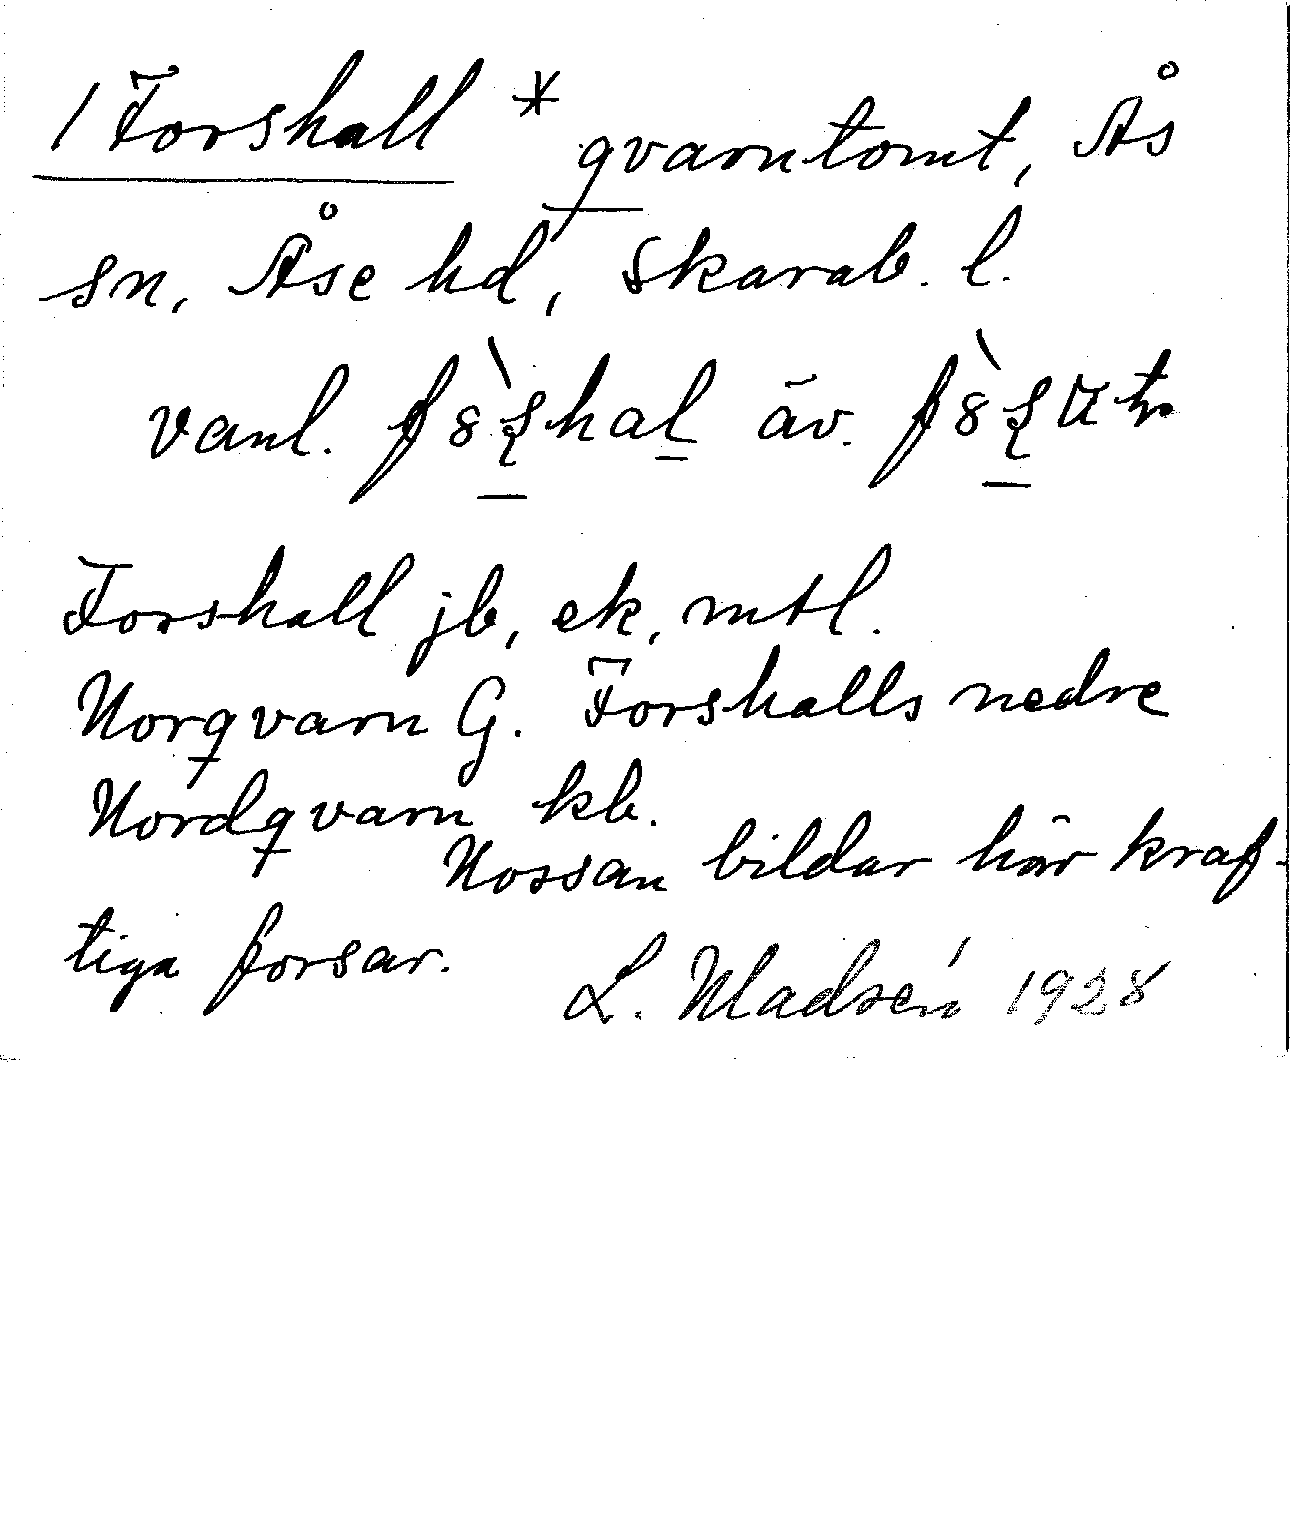 / Forshall * qvarntomt, Ås
sn, Åse hd, Skarab. l.
vanl. äv.
Forshall jb, ek, mtl.
Norqvarn G. Forshalls nedre
Nordqvarn kb.
Nossan bildar här kraf-
tiga forsar.
L. Madsén 1928